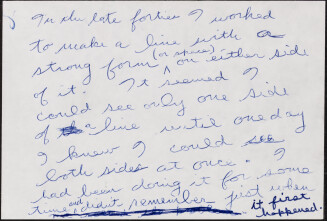 In the late forties I worked
to make a line with a
strong form (or space) on either side
of it. It seemed I
could see only one side
of a line until one day
I knew I could see
both sides at once. I
had been doing it for some
time and didn't remember just when
it first
happened.